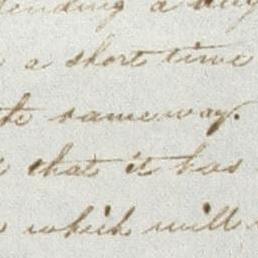 tending a day
a short time
the same way.
that it has
which will